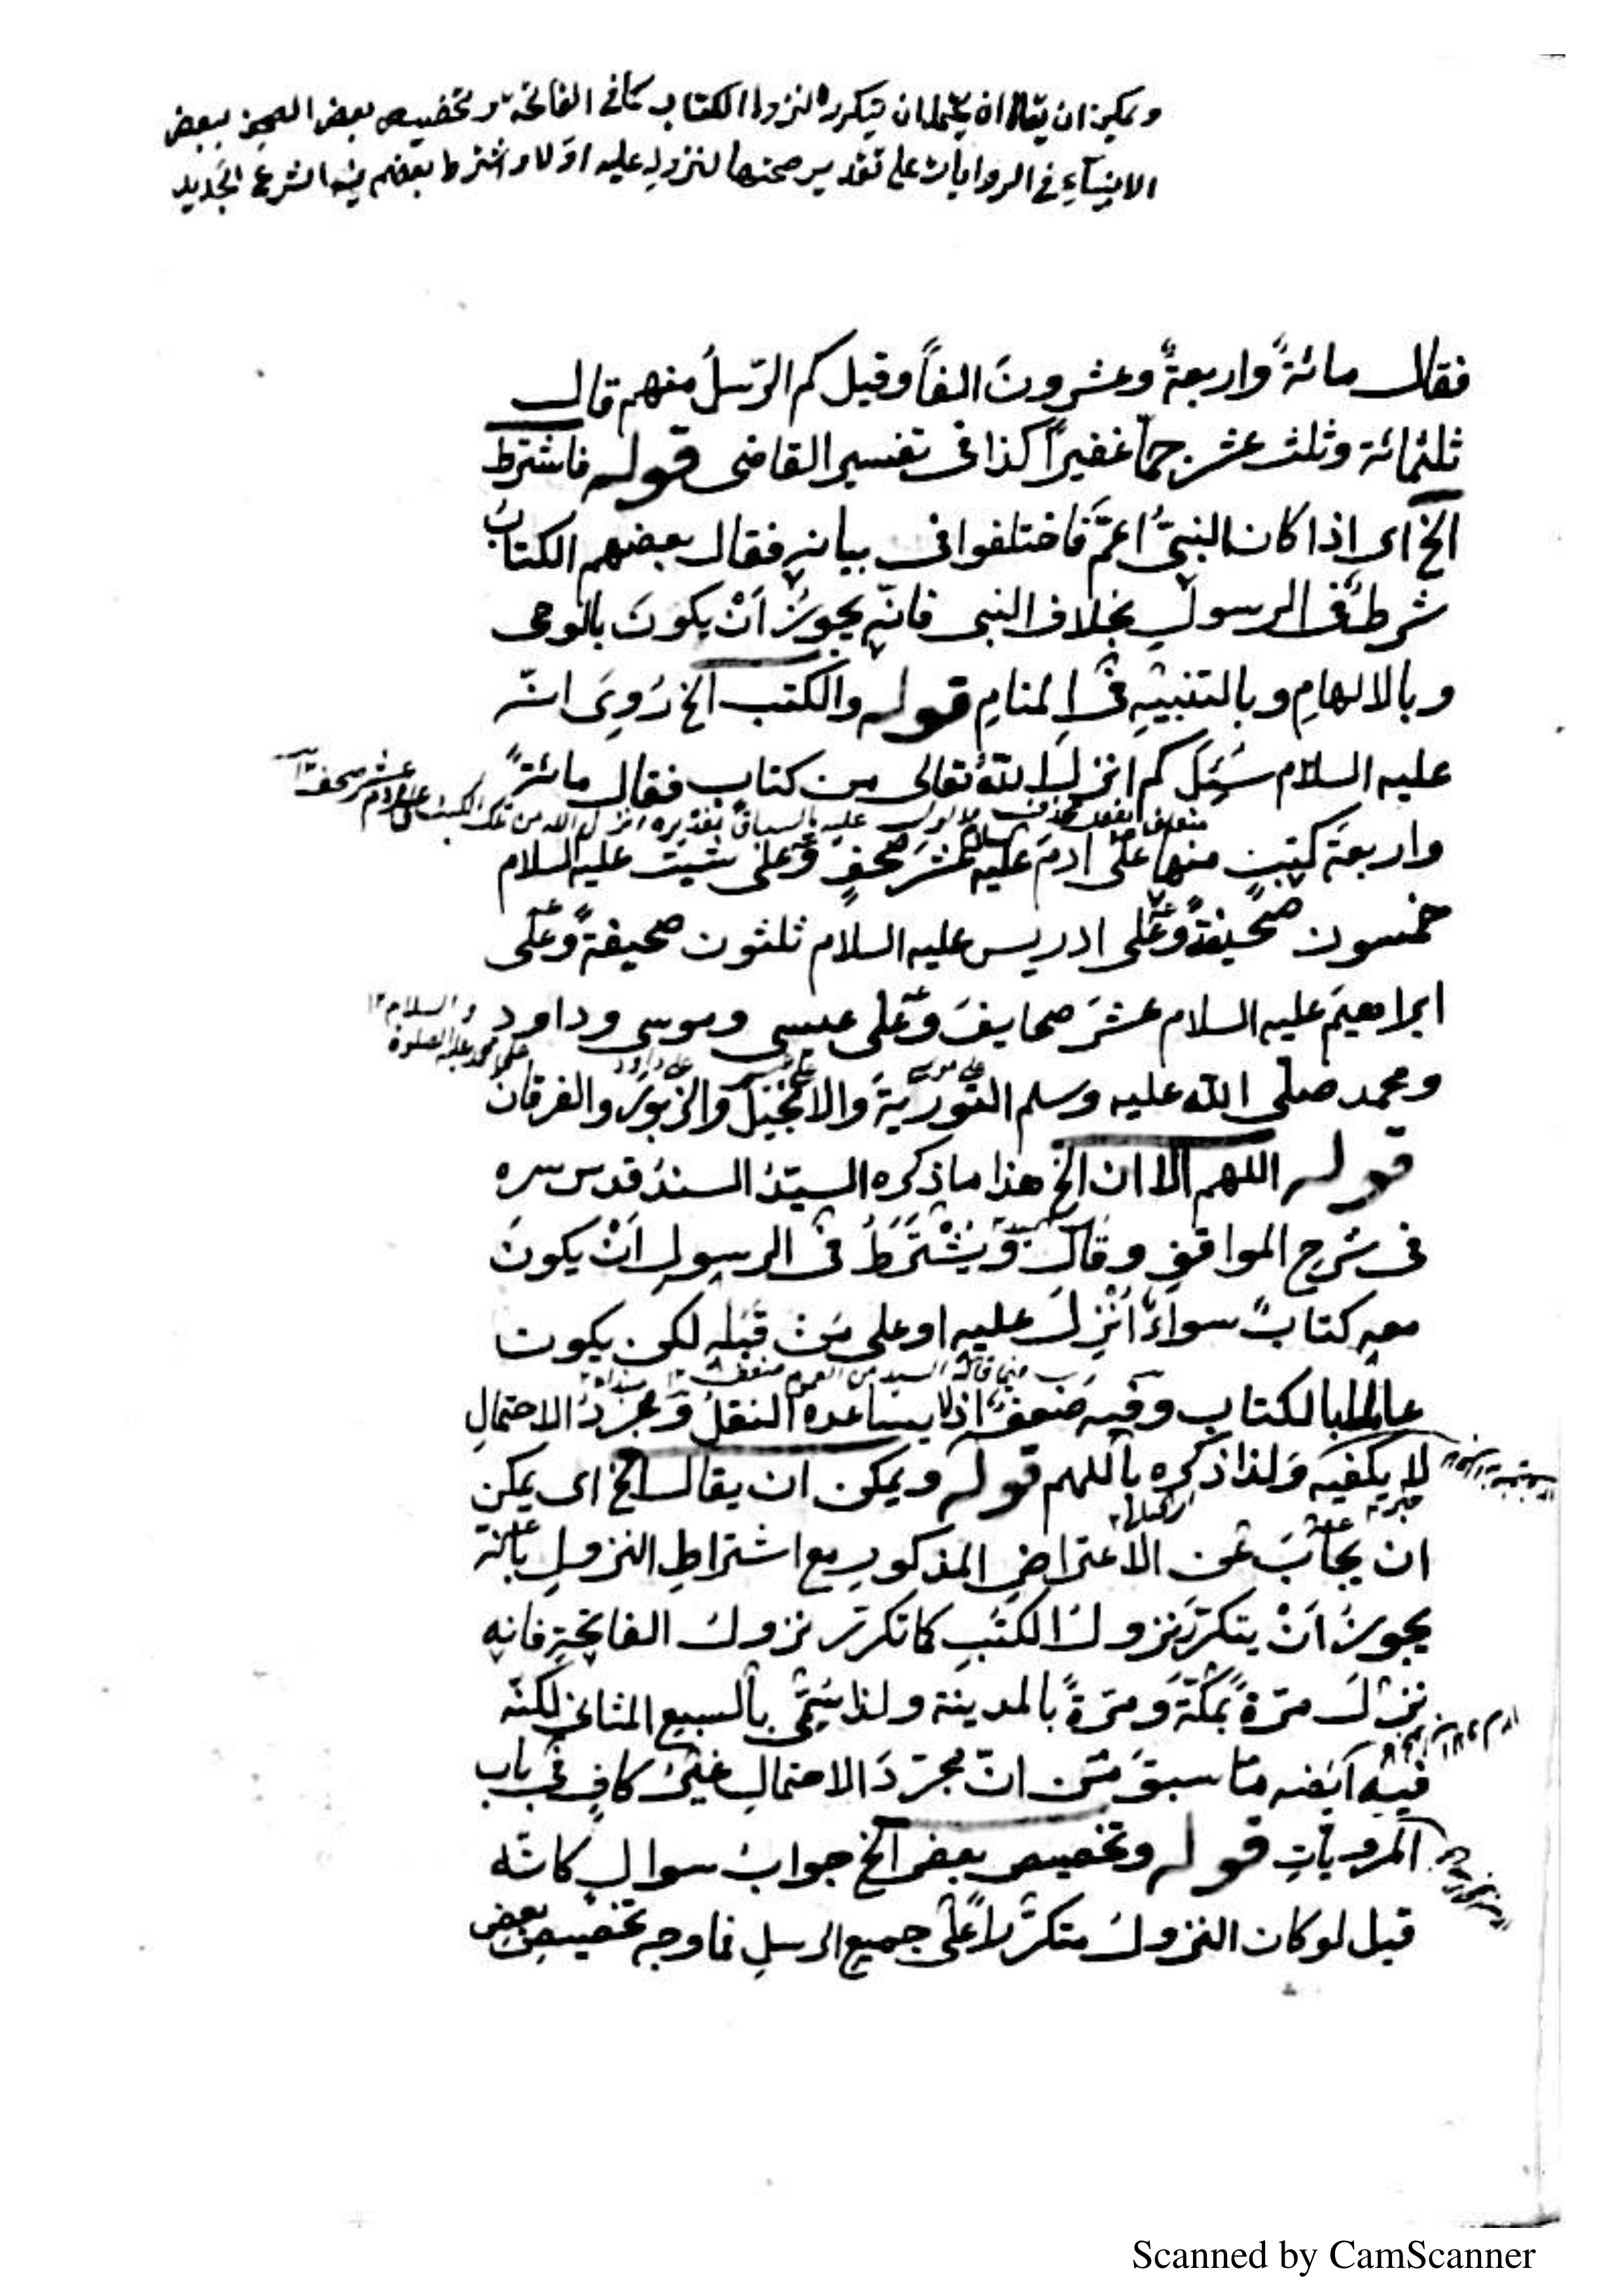 ويمكن ان يقال انه يحتمل ان يتكرر النزول الكتاب كما فى الفاتحة وتخصيص بعض الصحف ببعض
الانبياء فى الروايات على تقدير صحتها لنزوله عليه اولا واشترط بعضهم فيه الشرع الجديد
فقال مائةً واربعةً وعشرونَ الفاً وقيل كم الرّسلُ منهم قال
ثلثمائة وثلث عشر جمّا غفيراً كذا فى تفسير القاضى قوله فاشترط
الخ اى اذا كان النبىُّ اعمَّ فاختلفوا فى بيانه فقال بعضهم الكتابُ
شرطٌ فى الرسولِ بخلاف النبى فانّه يجوزُ اَنْ يكونَ بالوحى
وبالالهامِ وبالتنبيهِ فى المنامِ قوله والكتب الخ رُوِىَ انّه
عليه السلام سُئِلَ كم انزلَ اللهُ تعالى من كتابٍ فقال مائةً
واربعةَ كتبٍ منها على ادمَ عليه السلام عشرَ صحفٍ وعلى شيث عليه السلام
خمسون صحيفةً وعلى ادريس عليه السلام ثلثون صحيفةً وعلى
ابراهيمَ عليه السلام عشرَ صحايفَ وعلى عيسى وموسى وداود
والسلام ١٢
على محمد عليه الصلوة
على موسى
على داود
ومحمد صلى الله عليه وسلم التوريةَ والانجيلَ والزبورَ والفرقان
قوله اللهم الا ان الخ هذا ما ذكره السيّدُ السندُ قدس سره
فى شرح المواقفِ وقال ويُشْتَرَطُ فى الرسولِ اَنْ يكونَ
معه كتابٌ سواءٌ اُنْزِلَ عليه او على مَن قبله لكن يكون
عالما بالكتابِ وفيه ضعفٌ اذ لا يساعده النقلُ ومجردُ الاحتمالِ
لا يكفيه ولذا ذكره باللهم قوله ويمكن ان يقال الخ اى يمكن
ان يجابَ عن الاعتراضِ المذكورِ مع اشتراطِ النزولِ بانّه
يجوزُ اَنْ يتكرّرَ نزولُ الكتبِ كما تكرّر نزولُ الفاتحةِ فانه
نزلَ مرّةً بمكّةَ ومرّةً بالمدينة ولذا يسمّى بالسبع المثانى لكنّه
فيه ايضه ما سبقَ من انّ مجرّدَ الاحتمالِ غيرُ كافٍ فى باب
المرويّاتِ قوله وتخصيص بعض الخ جوابُ سوالٍ كانّه
قيل لو كان النزولُ متكرّراً على جميع الرسلِ فما وجه تخصيصِ بعض
Scanned by CamScanner